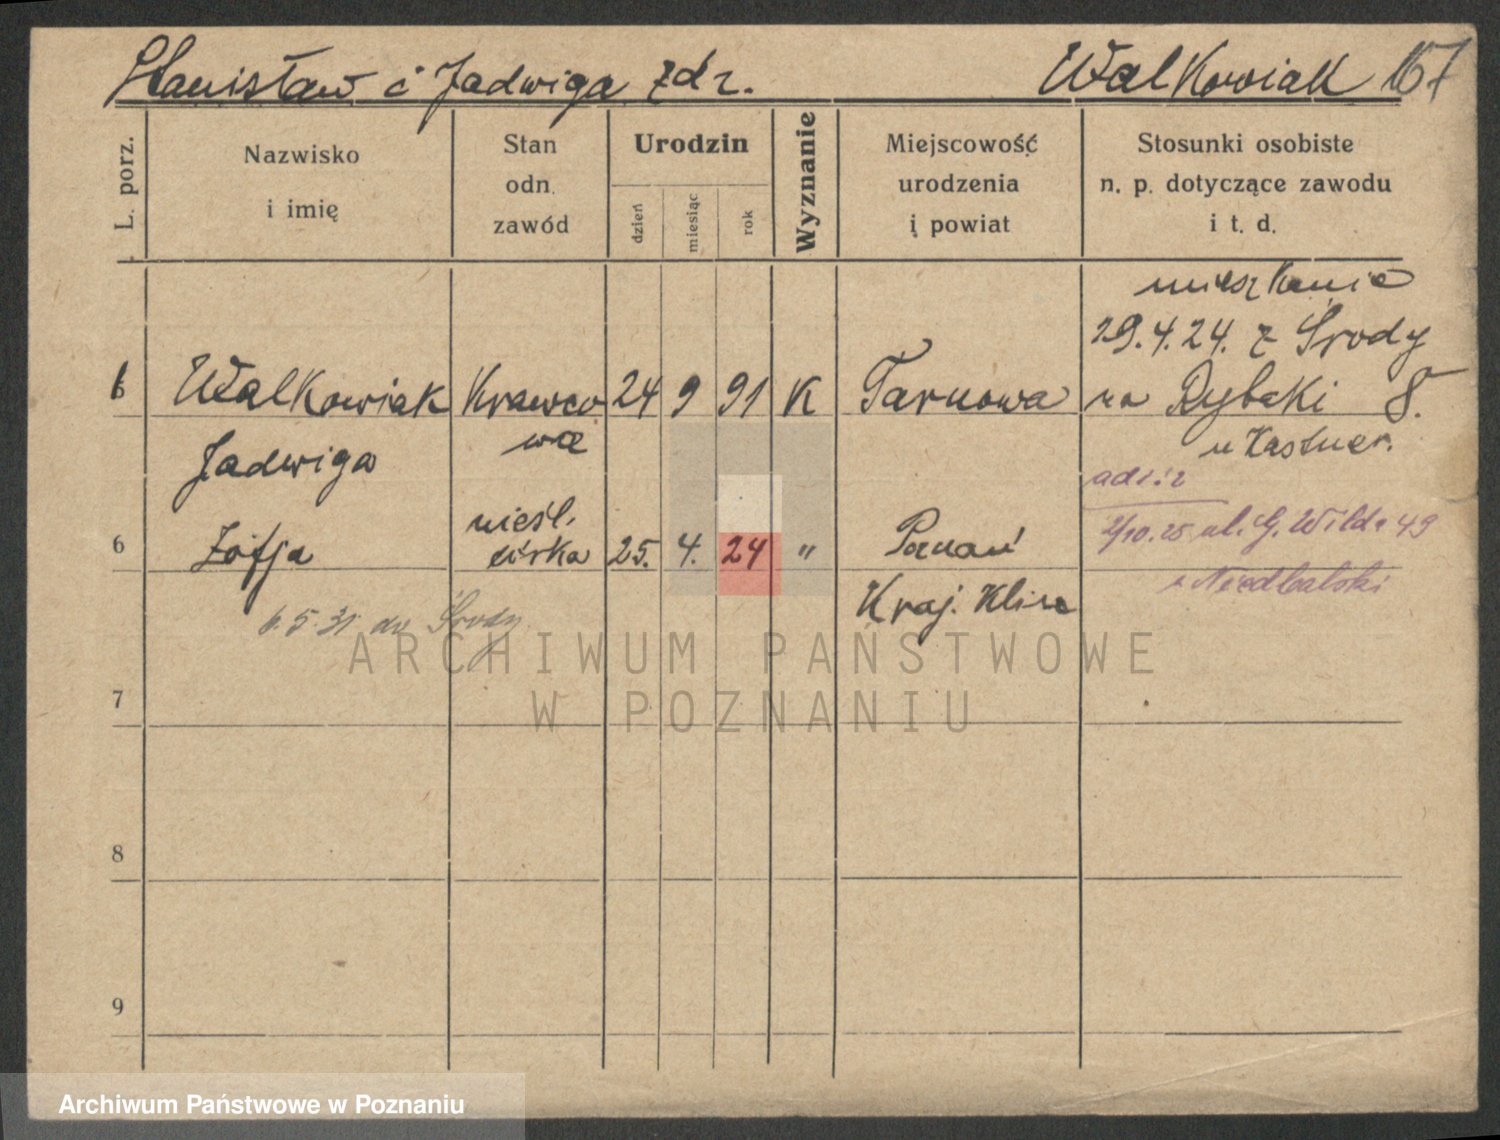 Stanisław i Jadwiga zd z. Walkowiak 167
L. porz.
Nazwisko
i imię
Stan
odn.
zawód
Urodzin
dzień
miesiąc
rok
Wyznanie
Miejscowość
urodzenia
i powiat
Stosunki osobiste
n. p. dotyczące zawodu
i t. d.
mieszkanie
29.4.24. z Środy
Walkowiak Krawco 24 9 91 K Tarnowa na Rybaki 8.
wa
u Kastner.
Jadwiga
nieśl.
6 Zofja córka 25. 4. 24 " Poznań
2/10.25 ul. G. Wilda 49
Niedbalski
Kraj. Klin
6.5.31 do Środy
ARCHIWUM PAŃSTWOWE
W POZNANIU
7
8
9
Archiwum Państwowe w Poznaniu